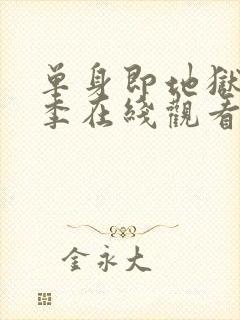 單身即地獄
季在綫觀看
金永大